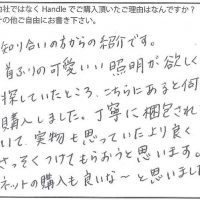 社ではなく Handle でご購入頂いたご理由はなんですか?
の他ご自由にお書き下さい。
知り合いの方からの紹介です。
首ふりの可愛いい照明が欲しく
探していたところ、こちらにあると伺
購入しました。丁寧に梱包され
いて、実物も思っていたより良く
さっそくつけてもらおうと思います。
ネットの購入も良いな〜と思いました